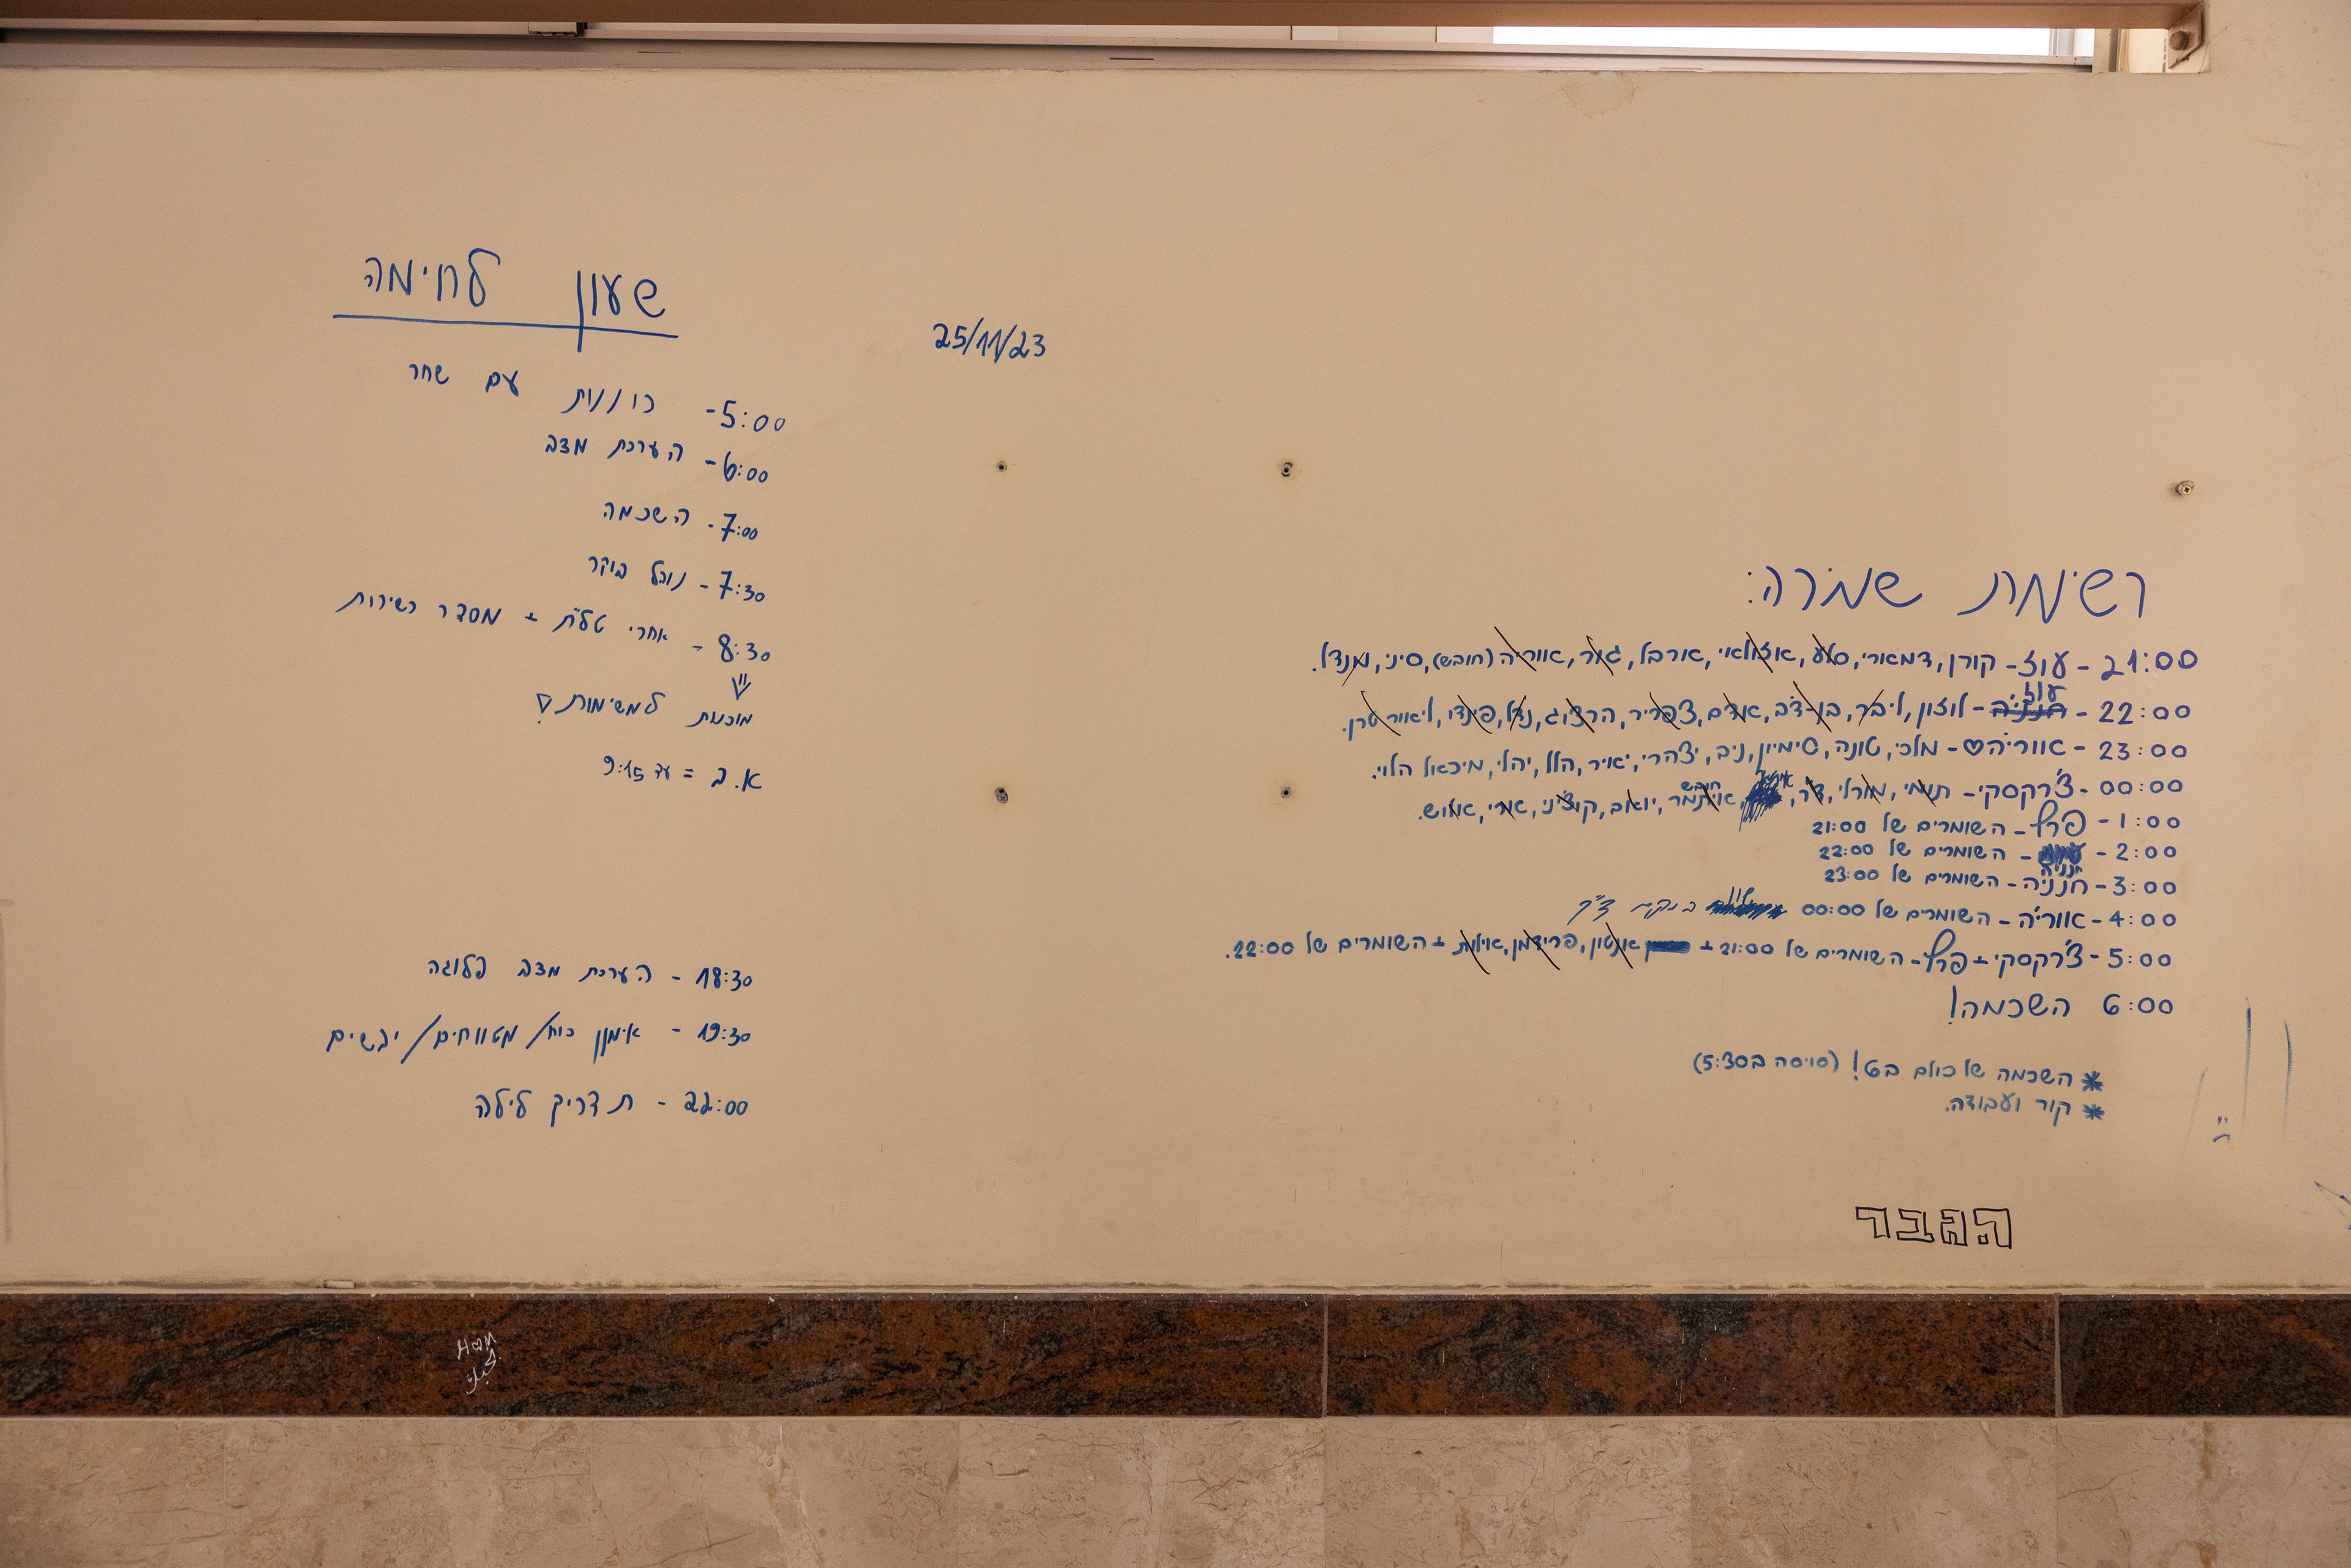 שעון לחימה
5:00- כוננות עם שחר
6:00- הערכת מצב
7:00- השכמה
7:30- נוהל בוקר
8:30- אחרי טל"ת + מסדר כשירות
מוכנות למשימות
א.ב = עד 9:15
18:30 - הערכת מצב פלוגה
19:30 - אימון כוח/מטווחים/יבשים
22:00 - תדריך לילה
25/11/23
רשימת שמירה:
21:00 - עוז - קורן, דמארי, סלע, אזולאי, ארבל, גור, אוריה (חובש), סיני, מנדל.
עוז
22:00 - חנניה - לוזון, ליבר, בן-דב, אדם, צפריר, הרצוג, נדל, פינדי, ליאור טרן.
23:00 - אווריה♡ - מלכי, טונה, סימיון, ניב, יצהרי, יאיר, הלל, יהלי, מיכאל הלוי.
חובש
00:00 - צ'רקסקי - תומי, מורלי, דר, איתמר, יואב, קוצ'יני, אורי
1:00 - פרץ - השומרים של 21:00
2:00 - השומרים של 22:00
חנניה
3:00 - חנניה - השומרים של 23:00
4:00 - אווריה - השומרים של 00:00
5:00 - צ'רקסקי + פרץ - השומרים של 21:00 + אנטון, פרידמן, אילות + השומרים של 22:00.
6:00 השכמה!
* השכמה של כולם ב6! (סויסה ב5:30)
* קור ועבודה.
הגבר